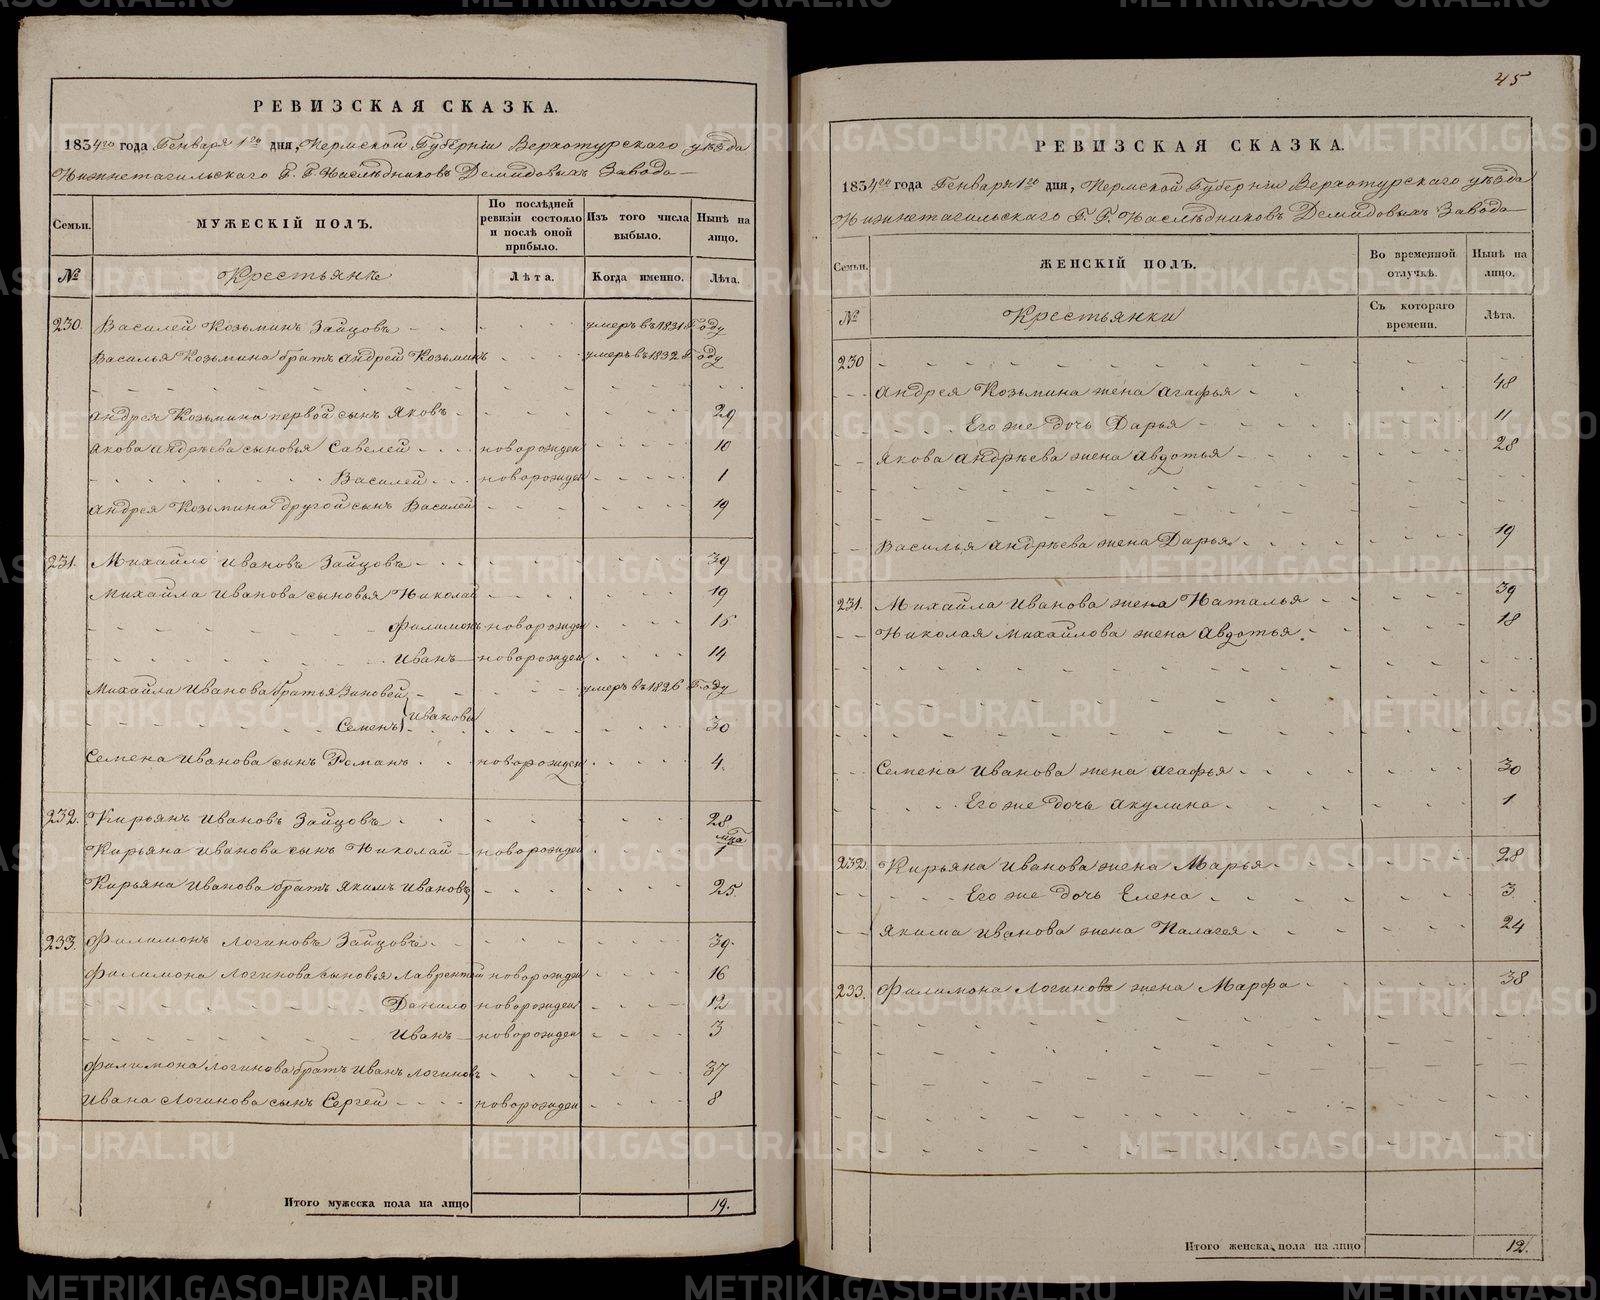 РЕВИЗСКАЯ СКАЗКА.
1834го года Генваря 1го дня, Пермской Губернии Верхотурскаго уѣзда
Нижнетагильскаго Г. Г. Наслѣдниковъ Демидовыхъ Завода
Семьи. МУЖЕСКІЙ ПОЛЪ. По послѣдней ревизіи состояло и послѣ оной прибыло. Изъ того числа выбыло. Нынѣ на лицо.
№ Крестьянѣ Лѣта. Когда именно. Лѣта.
230. Василей Козьминъ Зайцовъ умеръ въ 1831 Году
Василья Козьмина братъ Андрей Козьминъ умеръ въ 1832 Году
Андрея Козьмина первой сынъ Яковъ 29
Якова Андрѣева сыновья Савелей новорожден 10
Василей новорожден 1
Андрея Козьмина другой сынъ Василей 19
231. Михайло Ивановъ Зайцовъ 39
Михайла Иванова сыновья Николай 19
Филимонъ новорожден 15
Иванъ новорожден 14
Михайла Иванова братья Зиновей умеръ въ 1826 Году
Семенъ Ивановы 30
Семена Иванова сынъ Романъ новорожден 4.
232. Кирьянъ Ивановъ Зайцовъ 28
Кирьяна Иванова сынъ Николай новорожден 1 мца
Кирьяна Иванова братъ Якимъ Ивановъ 25.
233. Филимонъ Логиновъ Зайцовъ 39.
Филимона Логинова сыновья Лаврентей новорожден 16
Данило новорожден 12
Иванъ новорожден 3
Филимона Логинова братъ Иванъ Логиновъ 37
Ивана Логинова сынъ Сергей новорожден 8
Итого мужеска пола на лицо 19.
45
РЕВИЗСКАЯ СКАЗКА.
1834го года Генваря 1го дня, Пермской Губерніи Верхотурскаго уѣзда
Нижнетагильскаго Г. Г. Наслѣдниковъ Демидовыхъ Завода
Семьи. ЖЕНСКІЙ ПОЛЪ. Во временной отлучкѣ. Нынѣ на лицо.
№ Крестьянки Съ котораго времени. Лѣта.
230
Андрея Козьмина жена Агафья 48
Его же дочь Дарья 11
Якова Андрѣева жена Авдотья 28
Василья Андрѣева жена Дарья 19
231. Михайла Иванова жена Наталья 39
Николая Михайлова жена Авдотья. 18
Семена Иванова жена Агафья 30
Его же дочь Акулина 1
232. Кирьяна Иванова жена Марья 28
Его же дочь Елена 3.
Якима Иванова жена Палагея 24
233. Филимона Логинова жена Марфа 38
Итого женска пола на лицо 12.
METRIKI.GASO-URAL.RU